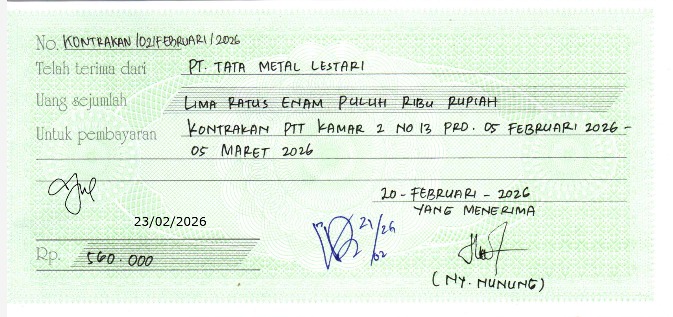 No. KONTRAKAN/02/FEBRUARI/2026
Telah terima dari PT. TATA METAL LESTARI
Uang sejumlah LIMA RATUS ENAM PULUH RIBU RUPIAH
Untuk pembayaran KONTRAKAN PTT KAMAR 2 NO 13 PRD. 05 FEBRUARI 2026 -
05 MARET 2026
20 - FEBRUARI - 2026
YANG MENERIMA
23/02/2026
Rp. 560.000
(NY. NUNUNG)